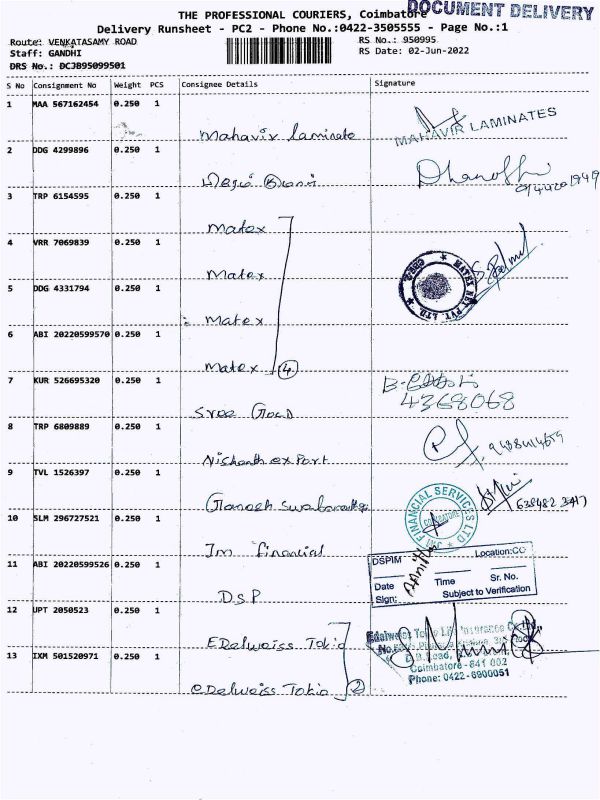 DOCUMENT DELIVERY
THE PROFESSIONAL COURIERS, Coimbatore
Delivery Runsheet - PC2 - Phone No.:0422-3505555 - Page No.:1
Route: VENKATASAMY ROAD
RS No.: 950995
Staff: GANDHI
RS Date: 02-Jun-2022
DRS No.: DCJB95099501
S No Consignment No Weight PCS Consignee Details Signature
1 MAA 567162454 0.250 1
Mahavir laminate MAHAVIR LAMINATES
2 DDG 4299896 0.250 1
3 TRP 6154595 0.250 1
Matex
4 VRR 7069839 0.250 1
Matex
5 DDG 4331794 0.250 1
Matex
6 ABI 20220599570 0.250 1
Matex 4
7 KUR 526695320 0.250 1
Sree Gold 4368068
8 TRP 6809889 0.250 1
Nishanth export
9 TVL 1526397 0.250 1
Ganesh
10 SLM 296727521 0.250 1
FINANCIAL SERVICES LTD
COIMBATORE
Jm financial
11 ABI 20220599526 0.250 1
DSPIM Location:CO
Date Time Sr. No.
Sign: Subject to Verification
DSP
12 UPT 2050523 0.250 1
Edelweiss Tokio
Edelweiss Tokio Life Insurance
13 IXM 501520971 0.250 1
Coimbatore - 641 002
Phone: 0422-6900051
Edelweiss Tokio 2